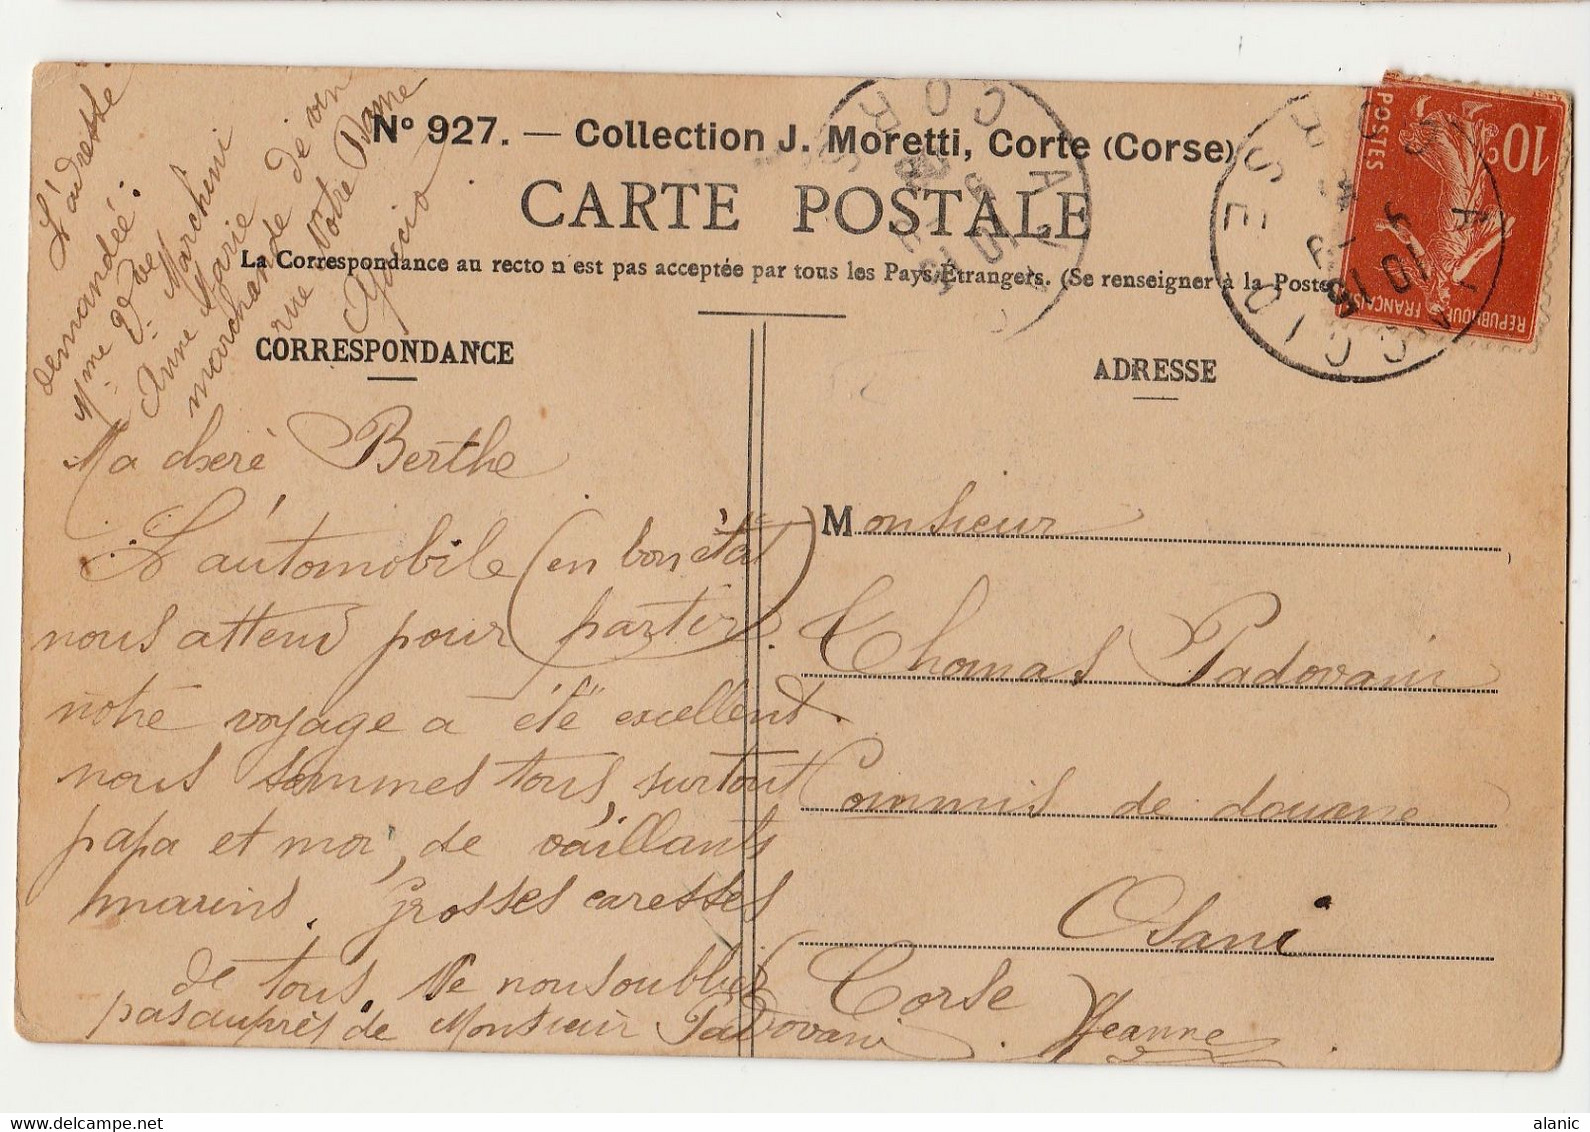 L'adresse
demandée :
Mme Vve Marcheni
Anne Marie
marchande de vin
rue Notre Dame
Ajaccio
No 927. — Collection J. Moretti, Corte (Corse)
CARTE POSTALE
La Correspondance au recto n est pas acceptée par tous les Pays Étrangers. (Se renseigner à la Poste
CORRESPONDANCE
Ma cheré Berthe
L'automobile (en bon état
nous attend pour partir)
notre voyage a été excellent.
nous sommes tous, surtout
papa et moi, de vaillants
marins. Grosses caresses
de tous. Ne nous oublier
pas auprès de Monsieur Padovani.
Jeanne
ADRESSE
Monsieur
Thomas Padovani
Commis de douane
Osani
Corse
10c
POSTES
REPUBLIQUE FRANÇAISE
AJACCIO
CORSE
AJACCIO
CORSE
alanic